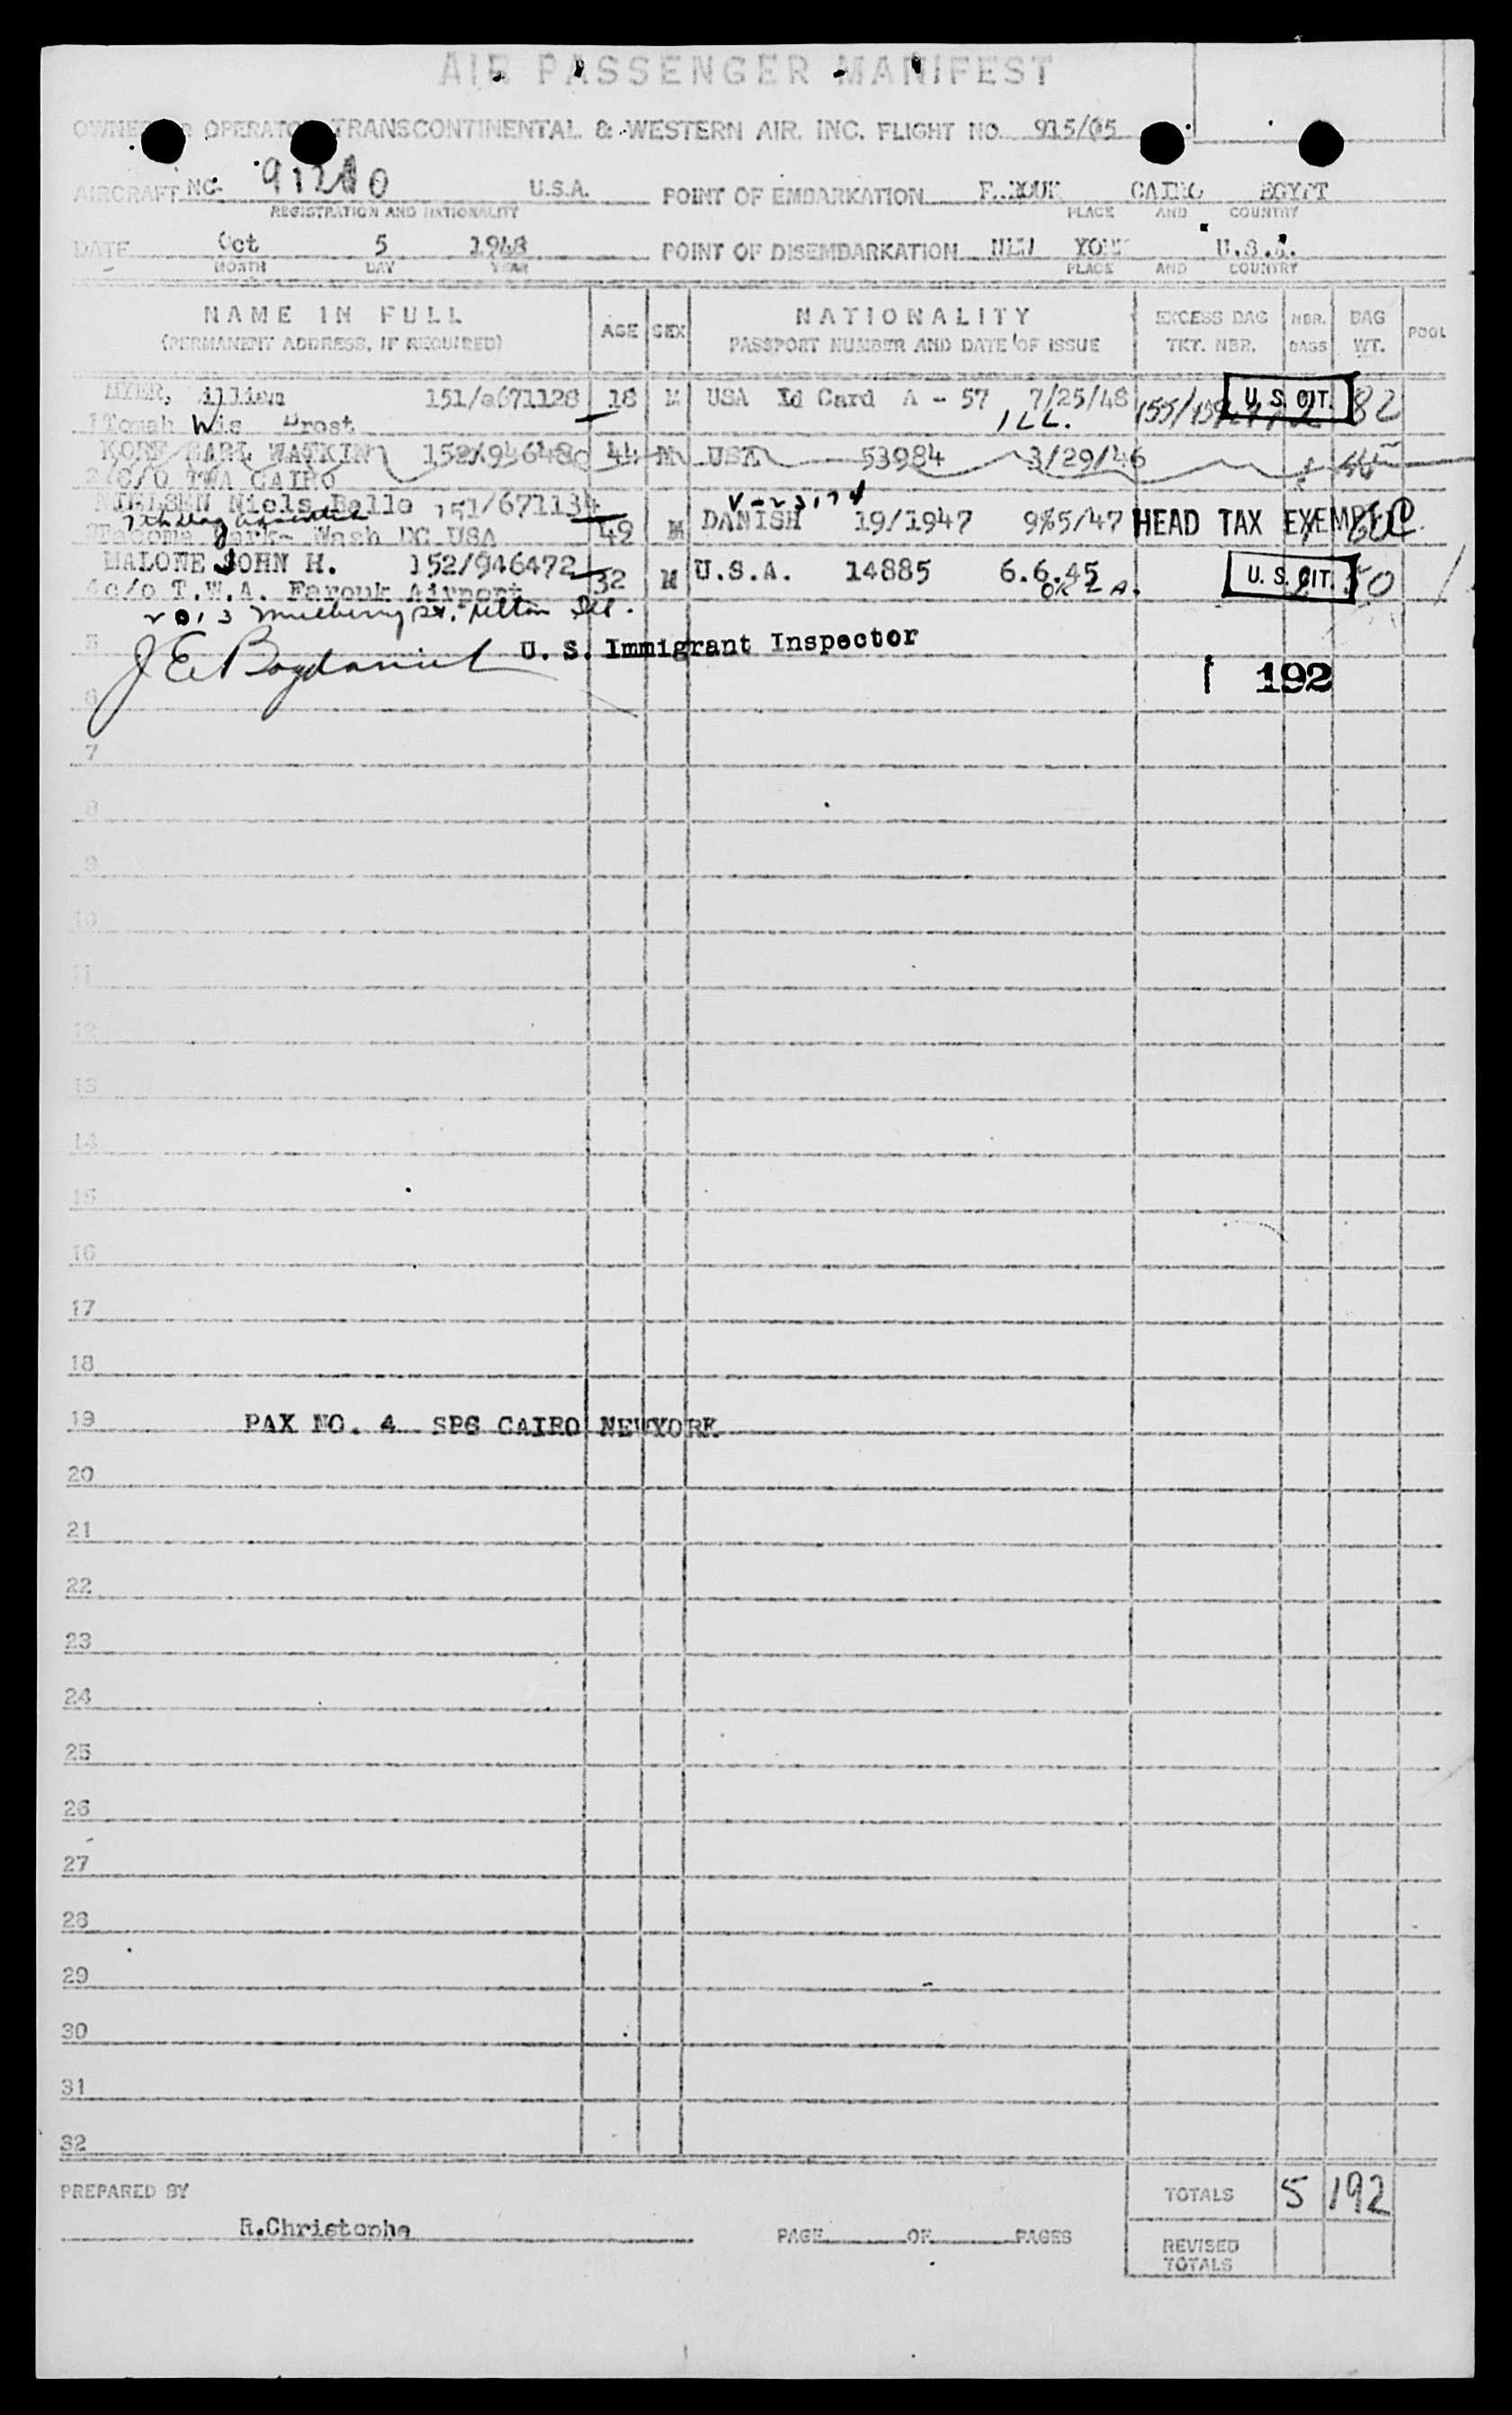 AIR PASSENGER MANIFEST
OWNER OR OPERATOR TRANSCONTINENTAL & WESTERN AIR. INC. FLIGHT NO. 915/05
AIRCRAFT NO. U.S.A. POINT OF EMBARKATION CAIRO EGYPT
REGISTRATION AND NATIONALITY PLACE AND COUNTRY
DATE Oct 5 1948 POINT OF DISEMBARKATION NEW YORK U.S.A.
MONTH DAY YEAR PLACE AND COUNTRY
NAME IN FULL AGE SEX NATIONALITY EXCESS BAG NBR. BAG POOL
(PERMANENT ADDRESS, IF REQUIRED) PASSPORT NUMBER AND DATE OF ISSUE TKT. NBR. BAGS WT.
MYER, 151/a671128 18 M USA Id Card A - 57 7/25/48 U. S. CIT. 82
1 Tomah Wis ILL.
KORF CARL WATKIN 44 M USA 53984 3/29/46
2 C/O TWA CAIRO
NIELSEN Niels Balle 151/671134
3 Park- Wash DC USA 49 M DANISH 19/1947 9%5/47 HEAD TAX EXEMPT
MALONE JOHN H. 152/946472 32 M U.S.A. 14885 6.6.45 U. S. CIT. 50
4 c/o T.W.A. Farouk Airport
U. S. Immigrant Inspector
5
6 192
7
8
9
10
11
12
13
14
15
16
17
18
19 PAX NO. 4 SPG CAIRO NEWYORK
20
21
22
23
24
25
26
27
28
29
30
31
32
PREPARED BY TOTALS 5 192
R.Christophe PAGE OF PAGES REVISED
TOTALS